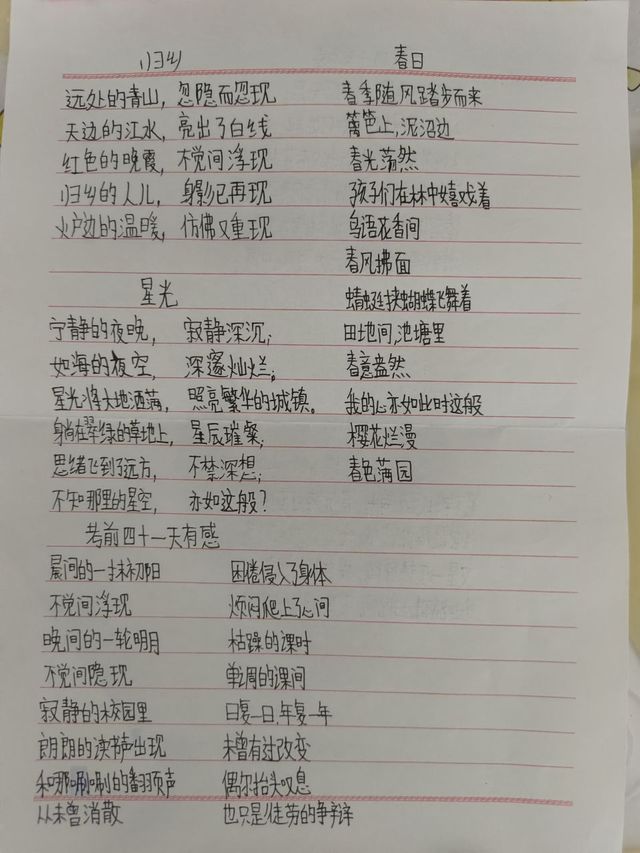 归乡
远处的青山，忽隐而忽现
天边的江水，亮出了白线
红色的晚霞，不觉间浮现
归乡的人儿，身影已再现
火户边的温暖，仿佛又重现
春日
春季随风踏步而来
篱笆上,泥沼边
春光荡然
孩子们在林中嬉戏着
鸟语花香间
春风拂面
蜻蜓挟蝴蝶飞舞着
田地间,池塘里
春意盎然
我的心亦如此时这般
樱花烂漫
春色满园
星光
宁静的夜晚，寂静深沉；
如海的夜空，深邃灿烂。
星光将大地洒满，照亮繁华的城镇。
身躺在翠绿的草地上，星辰璀璨；
思绪飞到了远方，不禁深想；
不知那里的星空，亦如这般？
考前四十一天有感
晨间的一抹初阳
不觉间浮现
晚间的一轮明月
不觉间隐现
寂静的校园里
朗朗的读书声出现
和那唰唰的翻页声
从未曾消散
困倦侵入了身体
烦闷爬上了心间
枯躁的课时
单调的课间
日复一日,年复一年
未曾有过改变
偶尔抬头叹息
也只是徒劳的争辩